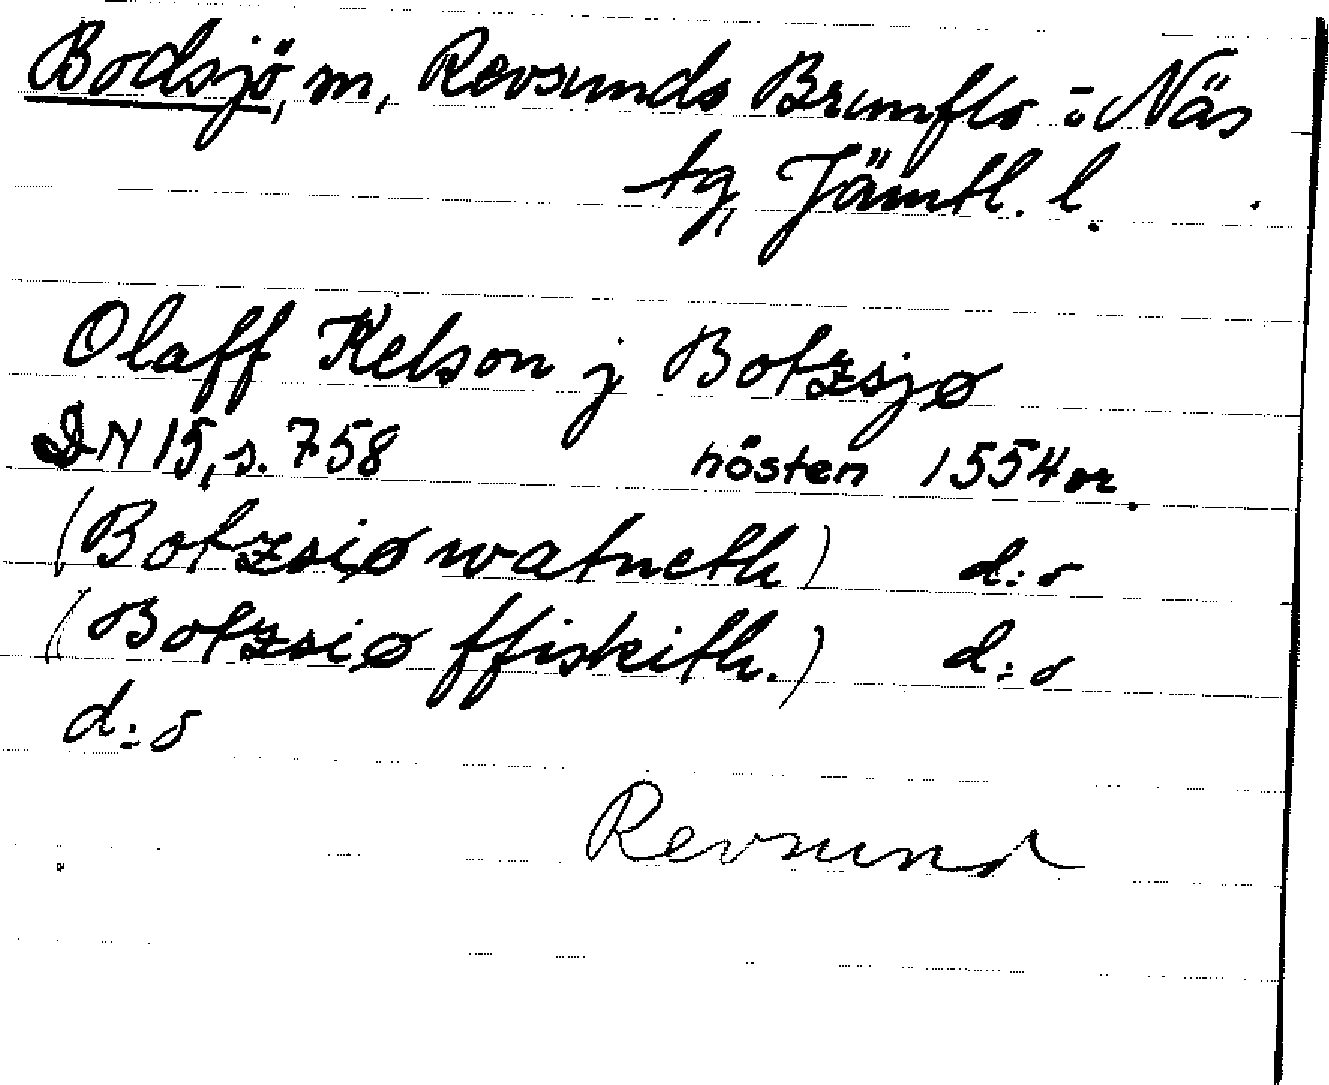 Bodsjö, m, Revsunds Brunflo o Näs
tg, Jämtl. l.
Olaff Kelson j Botzsjø
DN 15, s. 758 hösten 1554 or.
(Botzsiø watneth) d:o
(Botzsiø ffiskith.) d:o
d:o
Revsund